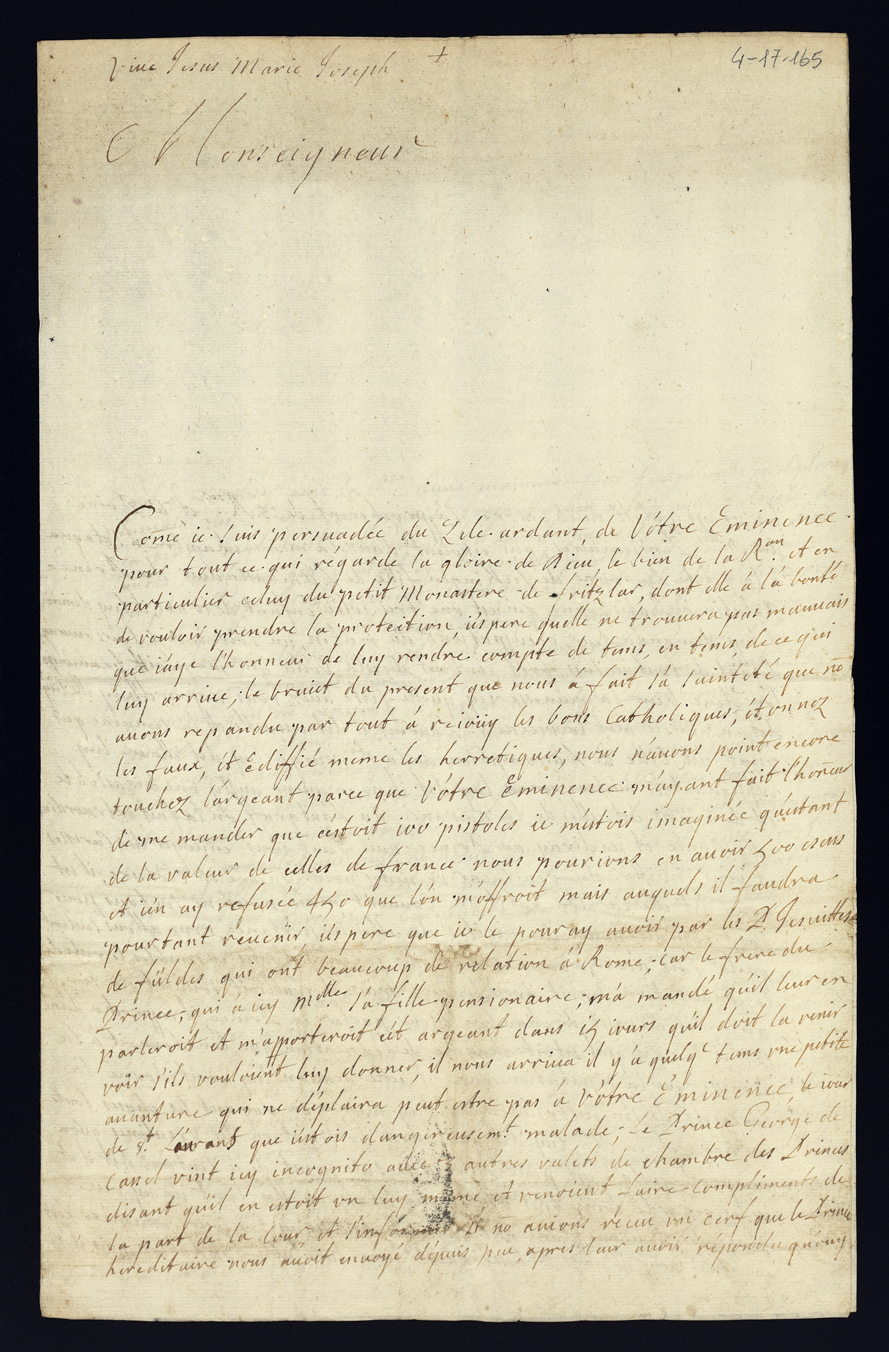 Viue Jesus Marie Joseph +
4-17-165
Monseigneur
Come ie suis persuadée du Zele ardant, de Vótre Eminence
pour tout ce qui régarde la gloire de Dieu, le bien de la R.on et en
particulier celuy du petit Monastere de fritzlar, dont elle à la bonté
de vouloir prendre la protection, i'éspere quelle ne trouuera pas mauuais
que i'aye l'honneur de luy rendre compte de tems, en tems, de ce qui
luy arriue, le bruict du present que nous à fait sa sainteté que nō
auons repandu par tout à reiöüy les bons Catholiques, étonnez
les faux, ét Ediffié meme les herretiques, nous n'auons point encore
touchez l'argeant parce que Vótre Eminence m'ayant fait l'hoñeur
de me mander que céstoit 100 pistoles ie m'éstois imaginée qu'estant
de la valeur de celles de france nous pourions en auoir 500 escus
et i'en ay refusée 450 que l'ón m'óffroit mais auquels il faudra
pourtant reuenir, i'éspere que ie le pouray auoir par les P. Jesuittes
de fúldes qui ont beaucoup de rélation à Rome; car le frere du
Prince, qui à icy Mdlle sa fille pensionaire; m'à mandé qu'il leur en
parleroit et m'apporteroit cét argeant dans 15 iours qu'il doit la venir
voir s'ils vouloient luy donner, il nous arriua il y'à quelqe tems vne petite
auanture qui ne déplaira peut estre pas à Vótre Eminence, le iour
de st. Laurant que i'éstois dangereusemt. malade, Le Prince George de
Cassel vint icy incognito auec autres valets de chambre des Princes
disant qu'il en éstoit vn luy meme ét venoient faire compliments de
la part de la Cour ét s'informer si nō auions réceu vn cerf que le Prince
hereditaire nous auoit enuoyé dépuis peu, apres leur auoir répondu qu'ouy